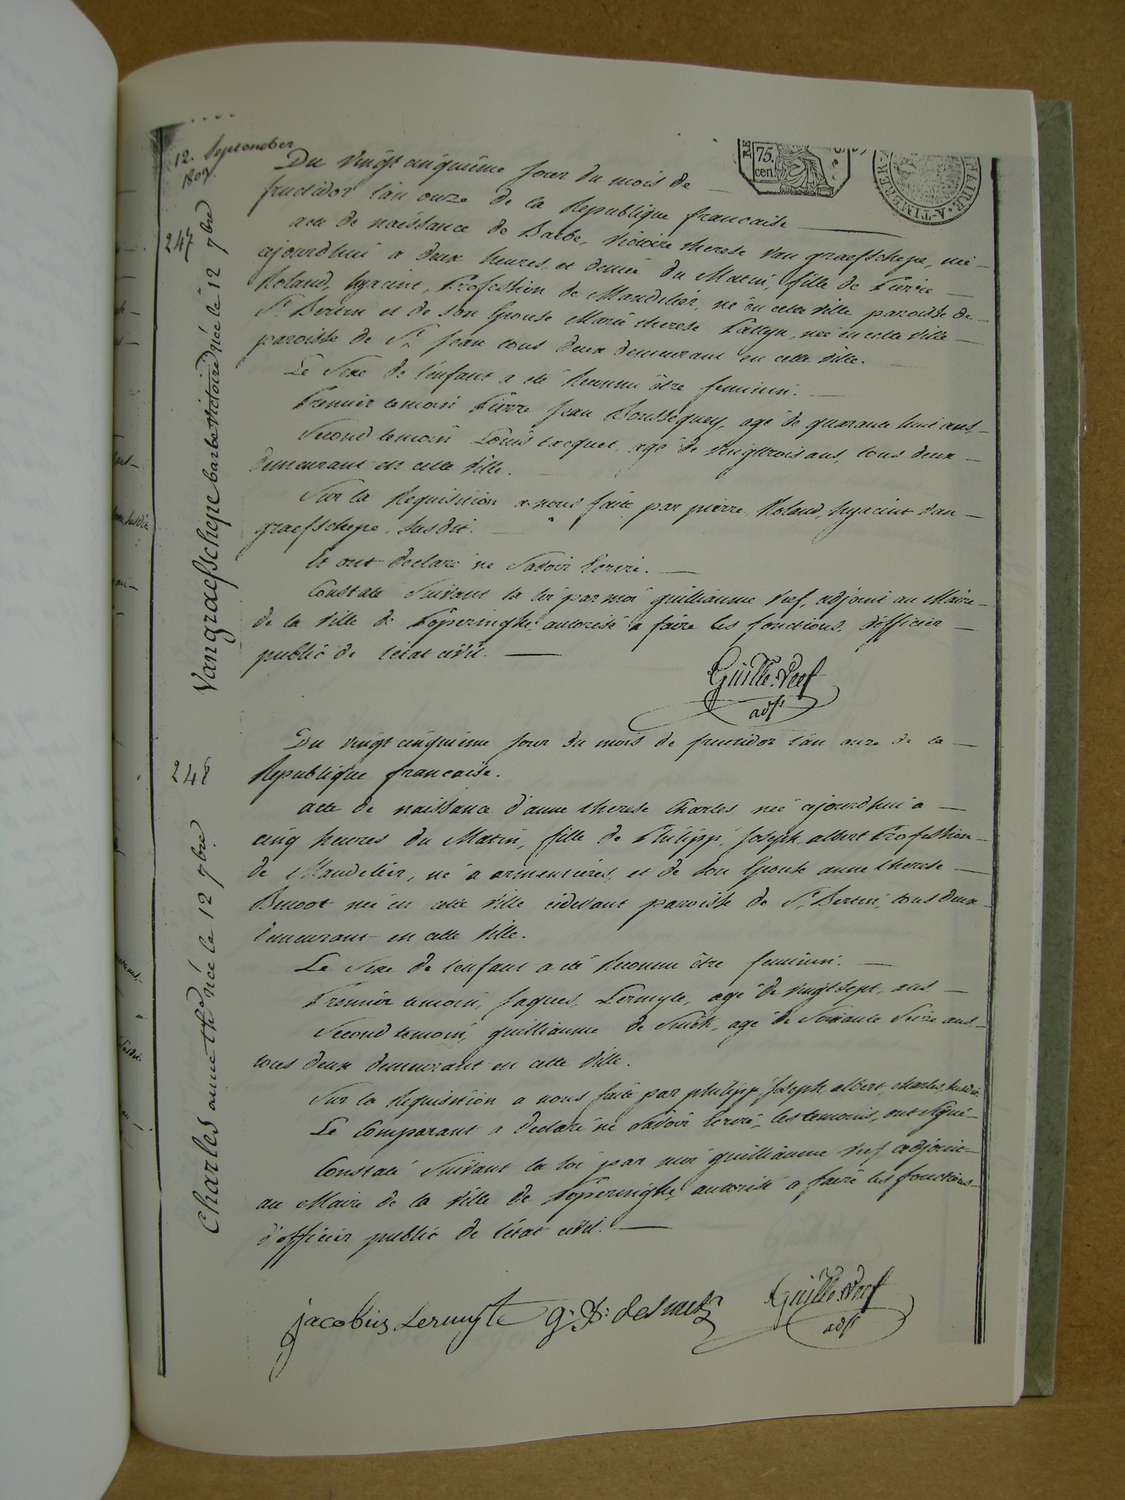 12. September
1803
75.
cen.
A-TIMBRER
Du vingt cinquième jour du mois de
fructidor l'an onze de la Republique francaise
247
acte de naissance de Barbe, victoire therese Van graefschepe, née
ajourdhui a deux heures et demie du Matin, fille de Pierre
Roland, hyacint, Profession de Mandelier, né en cette ville paroisse de
St Bertin et de son Epouse Marie therese , née en cette ville
paroisse de St Jean tous deux demeurant en cette ville.
Le Sexe de l'enfant a été Reconnu être feminin.
Premier temoin Pierre Jean , agé de quarante huit ans
Second temoin Louis , agé de vingttrois ans, tous deux
demeurant en cette ville.
Sur la Requisition a nous faite par pierre Roland, hyacint Van
graefschepe, Susdit.
Et ont declaré ne Savoir Ecrire.
Constaté Suivant la loi par moi guilliaume Veef, adjoint au Maire
de la Ville de Poperinghe autorisé a faire les fonctions, d'officier
public de l'etat civil.
Vangraefschepe barbe victoire née le 12 7bre
Guille. Veef
adjt
248
Du vingt cinquième jour du mois de fructidor l'an onze de la
Republique francaise.
acte de naissance d'anne therese Charles, née ajourdhui a
cinq heures du Matin, fille de Philipp, Joseph, albert Profession
de Mandelier, né a armentières, et de Son Epouse anne therese
Benoot née en cette ville cidevant paroisse de St Bertin, tous deux
demeurant en cette Ville.
Le Sexe de l'enfant a été Reconnu être feminin.
Premier temoin, Jaques, Lermyte, agé de vingtsept, ans
Second temoin, guilliaume de Smidt, agé de Soixante Seize ans
tous deux demeurant en cette Ville.
Sur la Requisition a nous faite par philipp Joseph albert, charles, susdit
Le Comparant a declaré ne Savoir Ecrire, les temoins, ont Signé
Constaté Suivant la loi par moi guilliaume Veef adjoint
au Maire de la Ville de Poperinghe, autorisé a faire les fonctions
d'officier public de l'etat civil.
Charles anne thé née le 12 7bre
jacobus Lermyte g: J: desmedt Guille. Veef
adjt